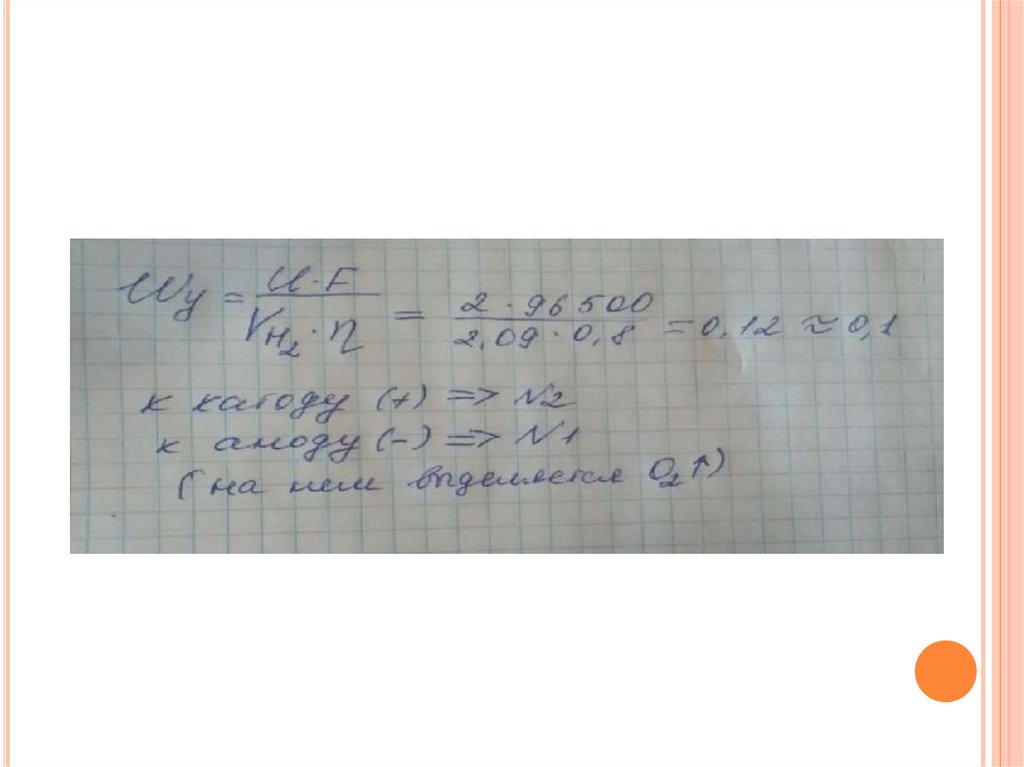 Wу = U·F / VH₂·η = 2·96500 / 2,09·0,8 = 0,12 ≈ 0,1
к катоду (+) => №2
к аноду (-) => №1
(на нем выделяется O₂↑)